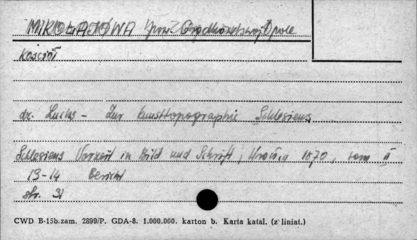 MIKOŁAJOWA
Kościół
dr. Luchs - Zur Kunsttopographie Schlesiens
Schlesiens Vorzeit in Bild und Schrift, 1870, tom II
13-14 Bericht
str. 31
CWD B-15b.zam. 2899/P. GDA-8. 1.000.000. karton b. Karta katal. (z liniat.)